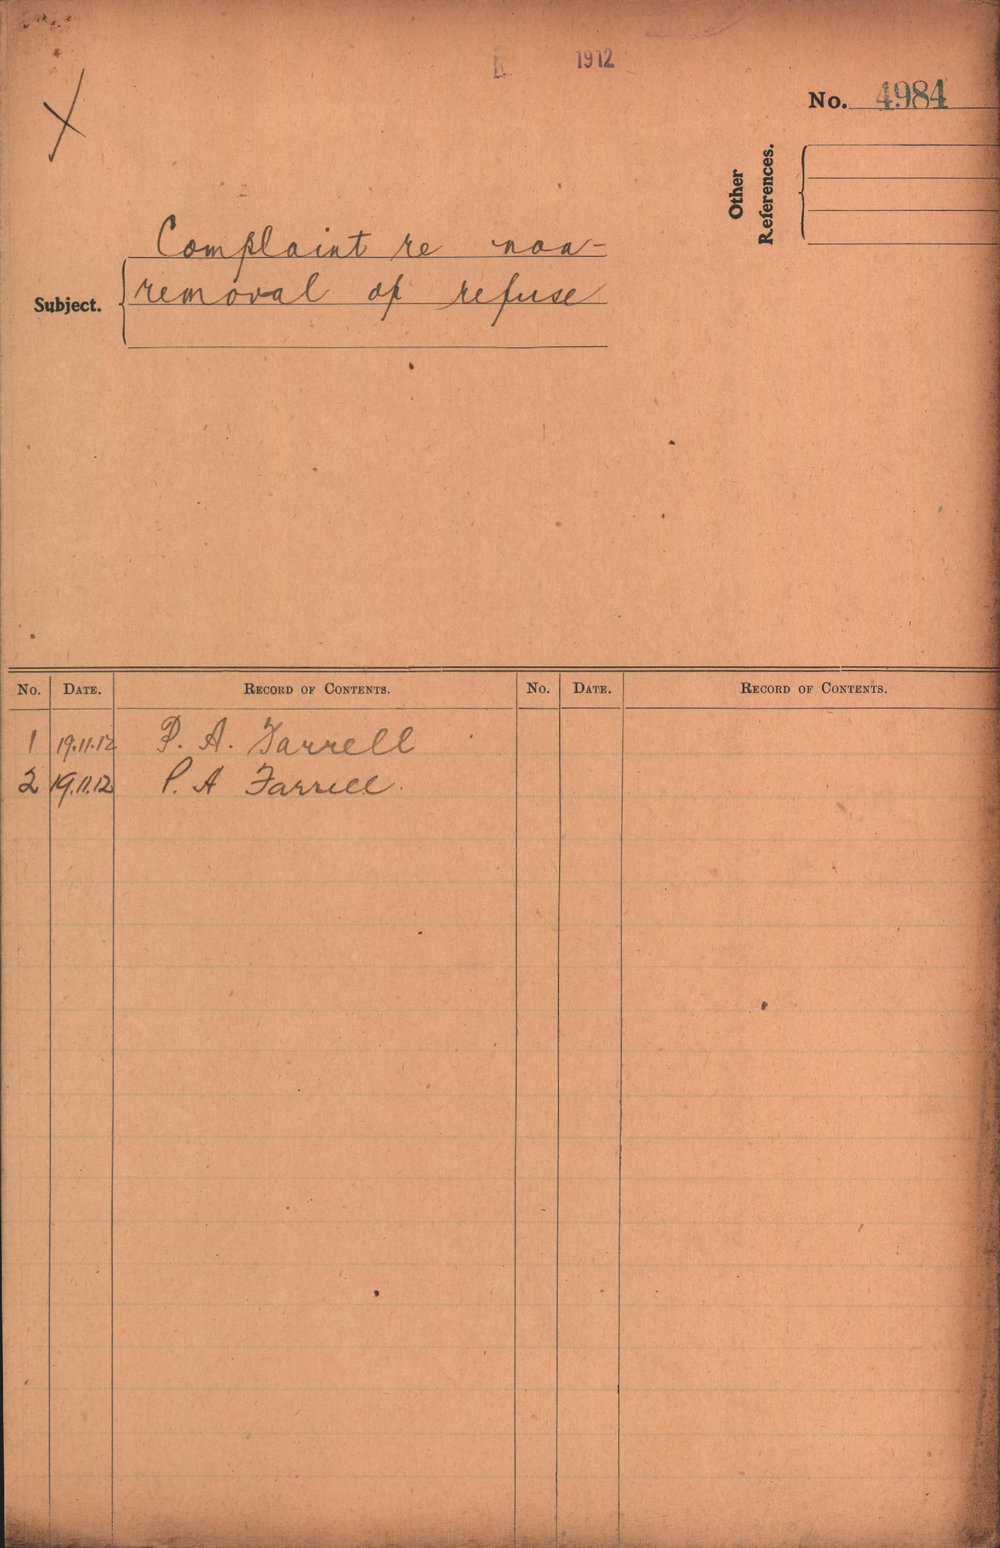 1912
No. 4984
Other References.
Complaint re non-
Subject. removal of refuse
No. DATE. RECORD OF CONTENTS. No. DATE. RECORD OF CONTENTS.
1 19.11.12 P. A. Farrell
2 19.11.12 P. A Farrell.